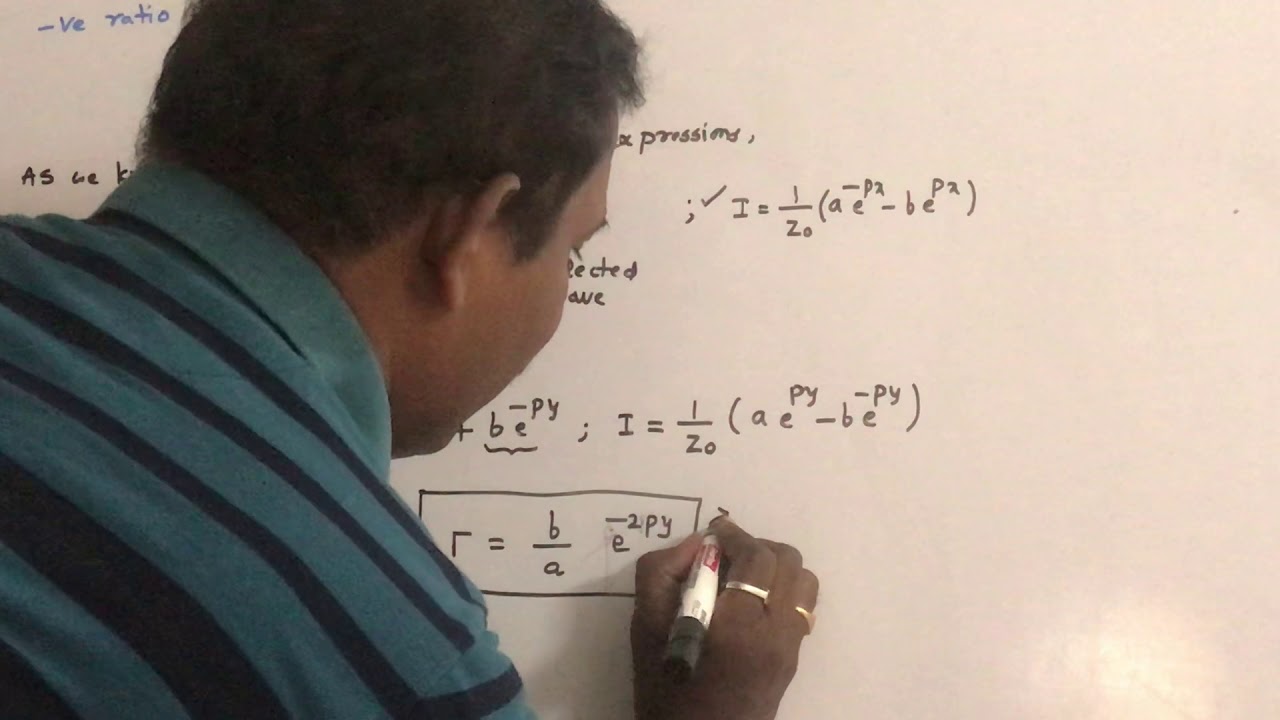 -ve ratio
xpressions,
As we k
; ✓ I = 1/Z₀ (a e^-px - b e^px)
lected
ave
+ b e^-py ; I = 1/Z₀ (a e^py - b e^-py)
Γ = b/a e^-2py